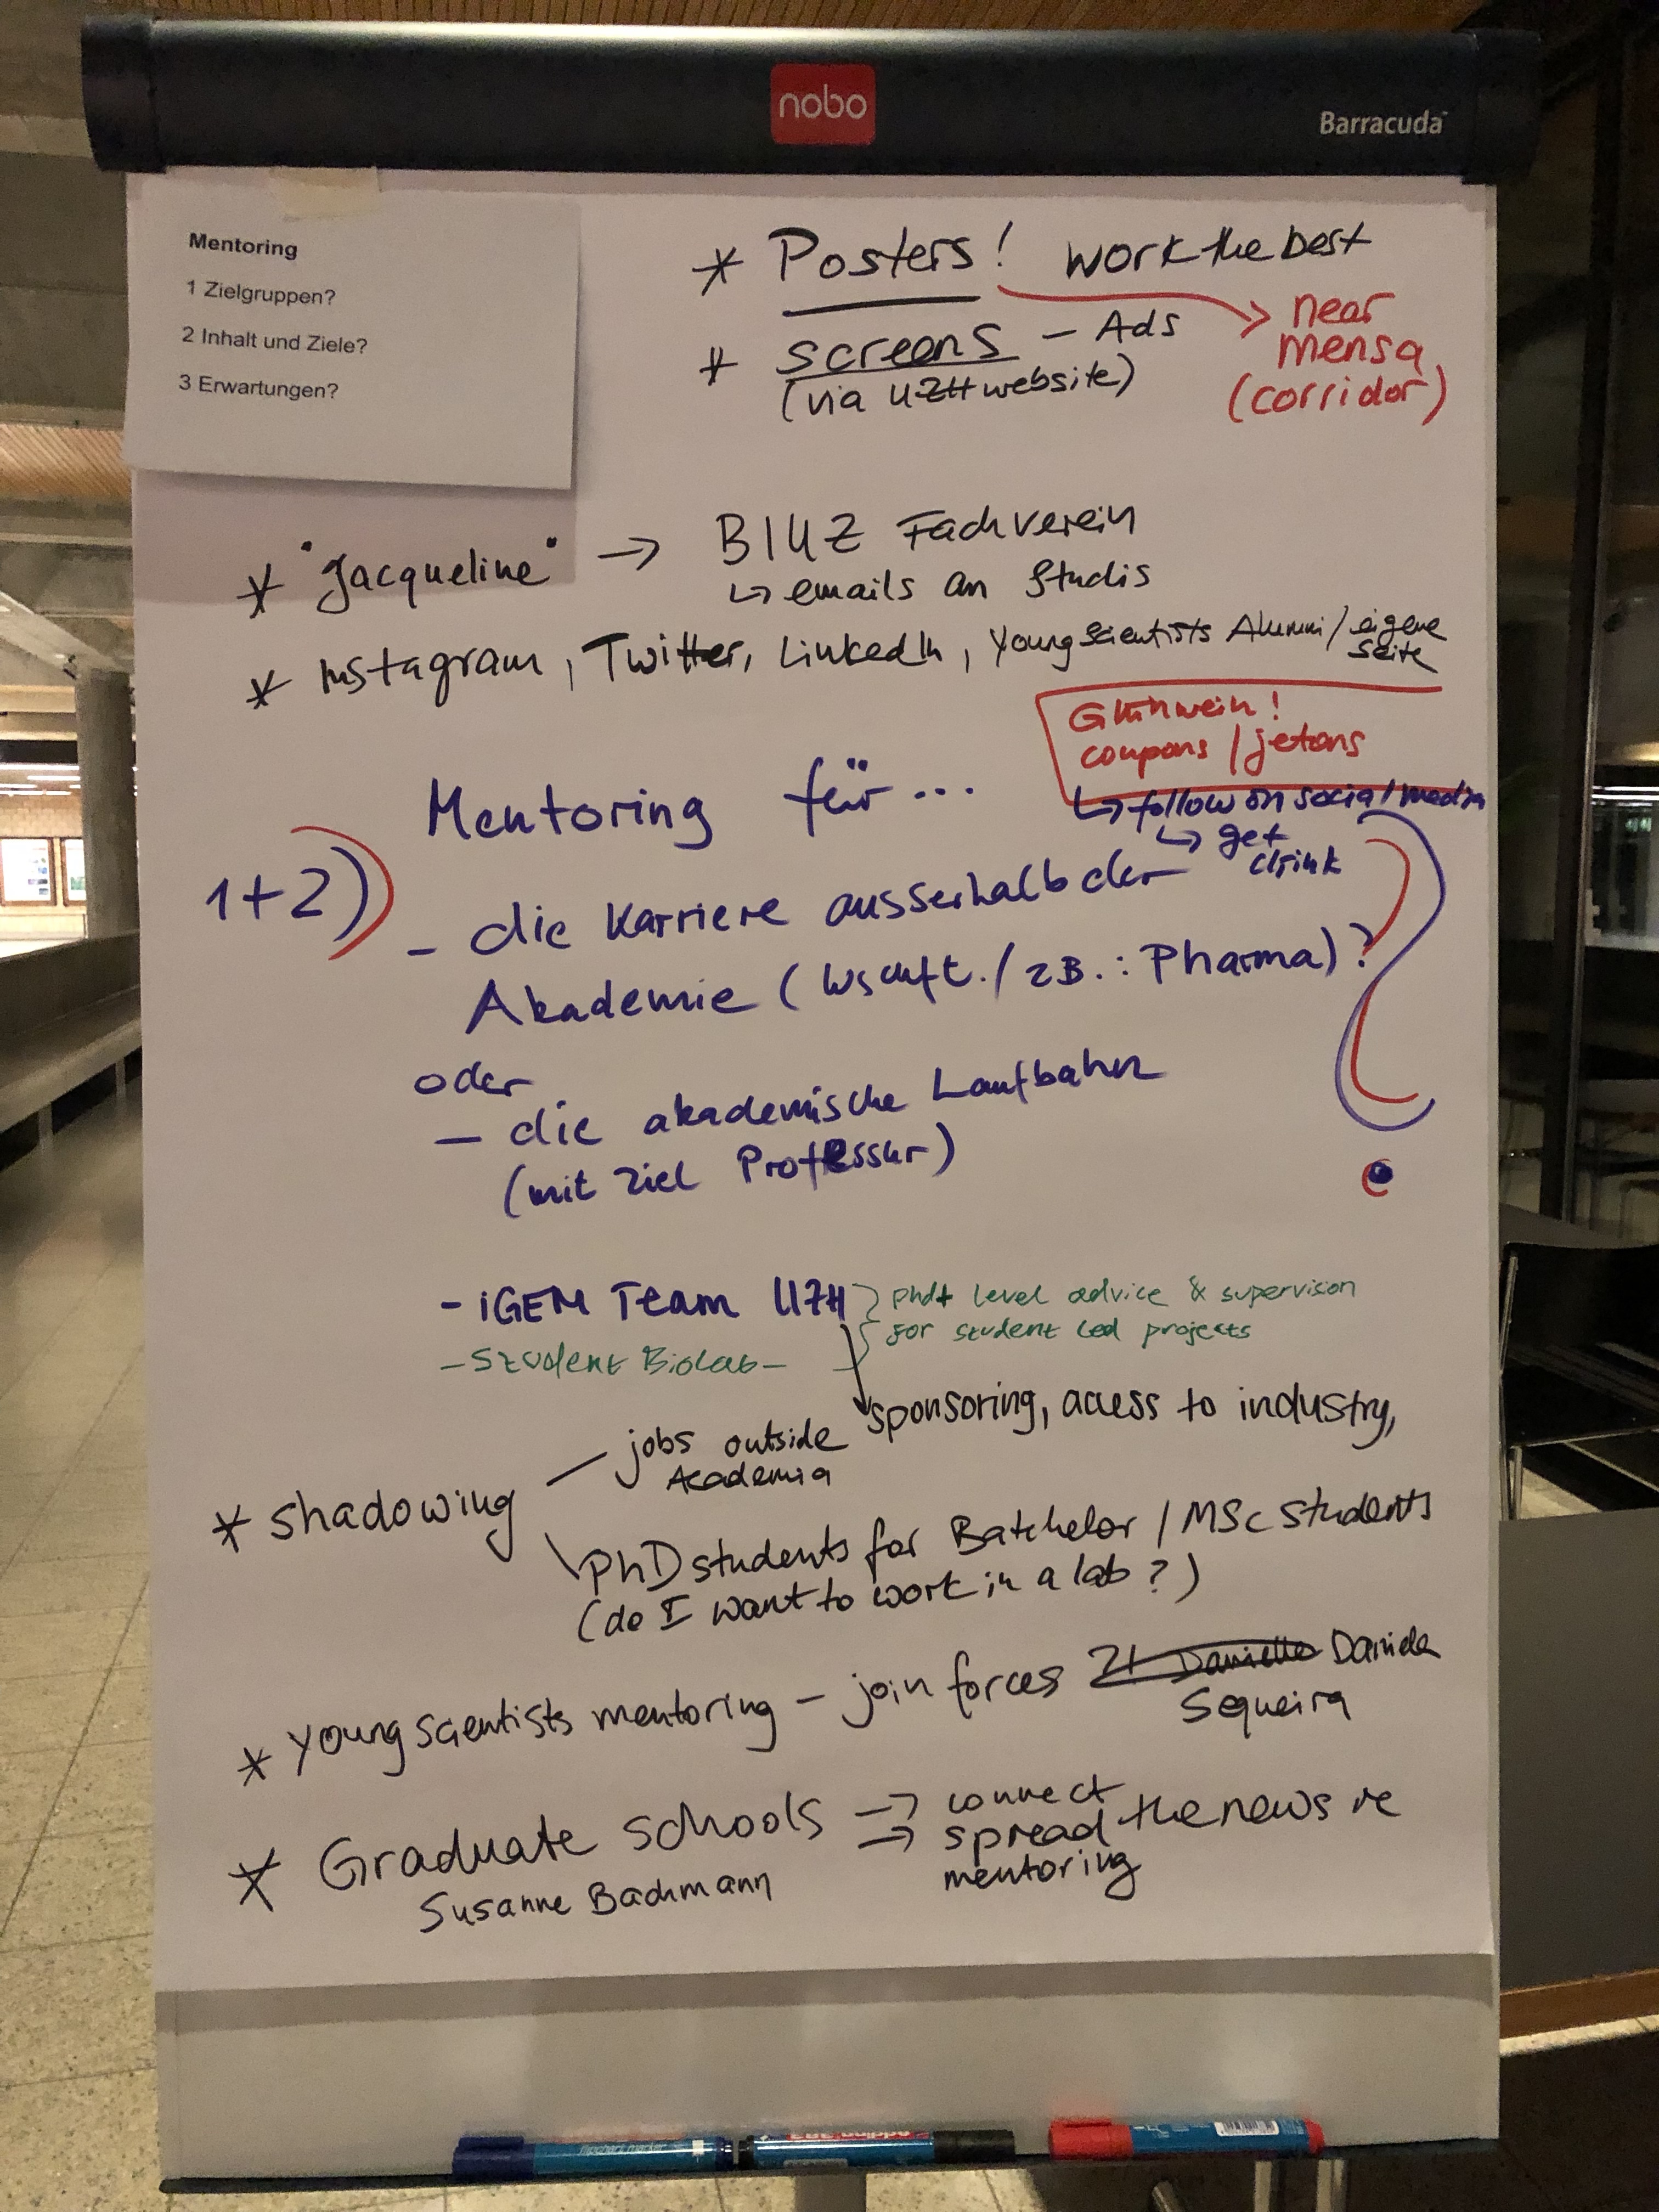 nobo
Barracuda
Mentoring
1 Zielgruppen?
2 Inhalt und Ziele?
3 Erwartungen?
* Posters! work the best
near
mensa
(corridor)
* screens – Ads
(via UZH website)
* "Jacqueline" → BIUZ Fachverein
↳ emails an Studis
* Instagram, Twitter, LinkedIn, Young Scientists Alumni / eigene
Seite
Glühwein!
coupons / jetons
↳ follow on social media
↳ get
drink
Mentoring für ...
1+2)
- die Karriere ausserhalb der
Akademie (Wschft. / zB.: Pharma)?
oder
- die akademische Laufbahn
(mit Ziel Professur)
- iGEM Team UZH
- Student Biolab -
Phd+ level advice & supervision
for student led projects
sponsoring, access to industry,
* shadowing – jobs outside
Academia
\ PhD students for Batchelor / MSc students
(do I want to work in a lab?)
* Young scientists mentoring – join forces Daniela
Sequeira
* Graduate schools → connect
→ spread the news re
mentoring
Susanne Bachmann